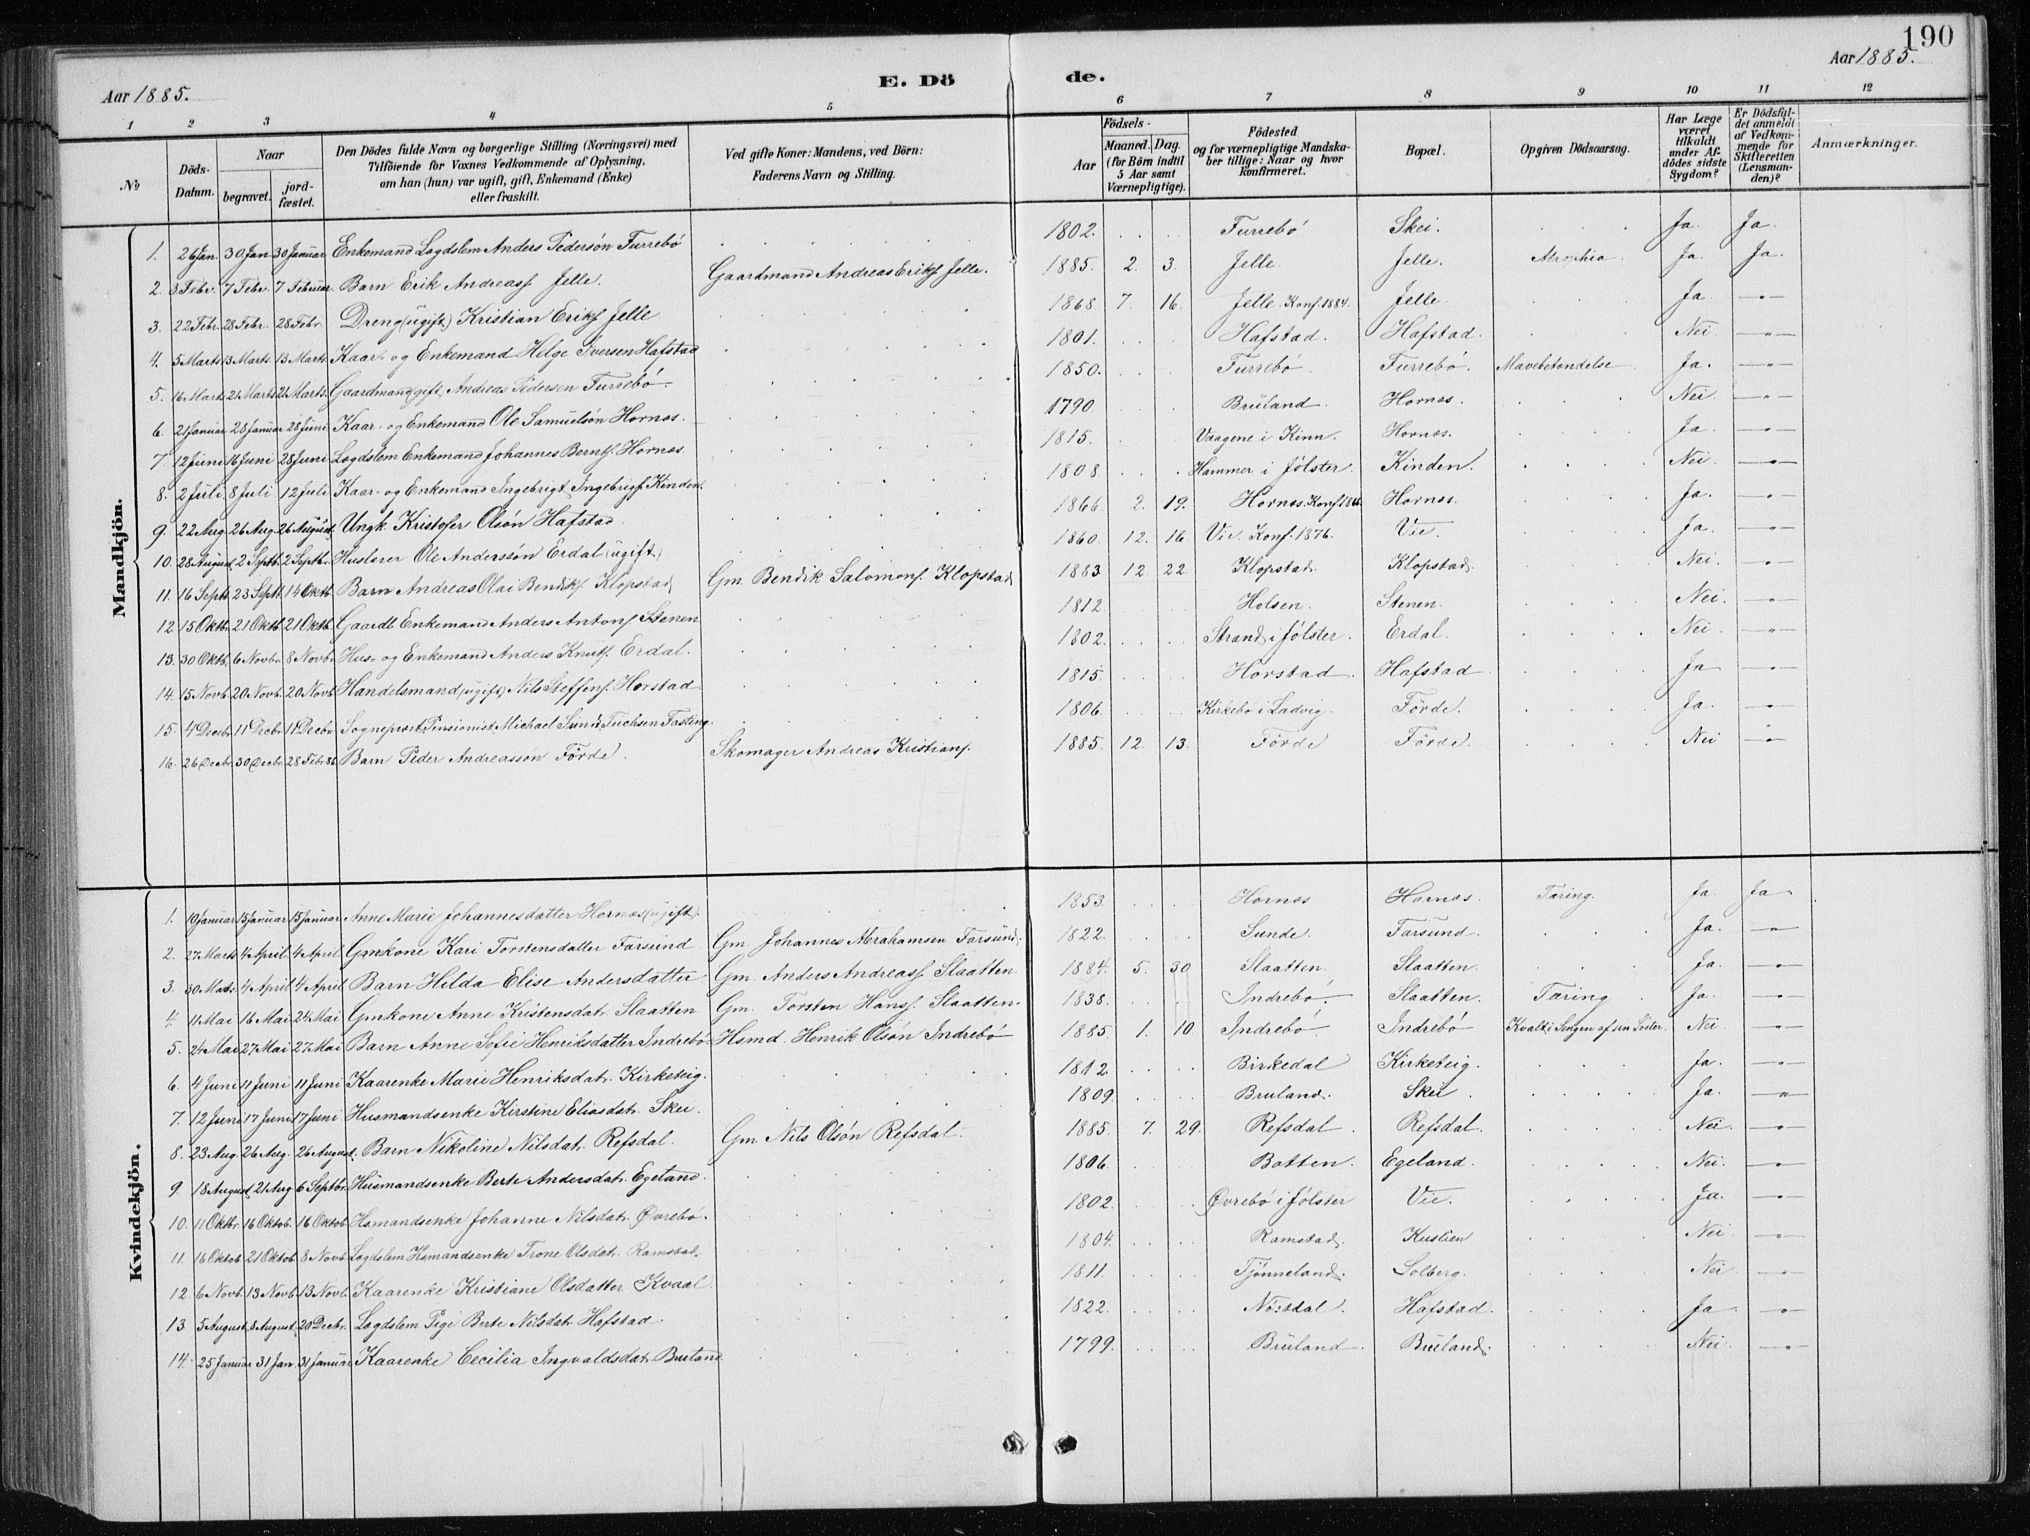 190
Aar 1885.
E. Döde.
Aar 1885.
1 2 3 4 5 6 7 8 9 10 11 12
No
Döds-Datum.
Naar
begravet.
jordfæstet.
Den Dödes fulde Navn og borgerlige Stilling (Næringsvei) med Tilföiende for Voxnes Vedkommende af Oplysning, om han (hun) var ugift, gift, Enkemand (Enke) eller fraskilt.
Ved gifte Koner: Mandens, ved Börn: Faderens Navn og Stilling.
Födsels-
Aar
Maaned. Dag. (for Börn indtil 5 Aar samt Værnepligtige).
Födested og for værnepligtige Mandskaber tillige: Naar og hvor konfirmeret.
Bopæl.
Opgiven Dödsaarsag.
Har Læge været tilkaldt under Afdödes sidste Sygdom?
Er Dödsfaldet anmeldt af Vedkommende for Skifteretten (Lensmanden)?
Anmærkninger.
Mandkjön.
1. 26 Jan. 30 Jan. 30 Januar Enkemand Lægdslem Anders Pedersön Furrebö 1802. Furrebö Skei. Ja. Ja.
2. 3 Febr. 7 Febr. 7 Februar. Barn Erik Andreass Jelle. Gaardmand Andreas Eriks Jelle. 1885. 2. 3. Jelle. Jelle. Atrophia Ja. Ja.
3. 22 Febr. 28 Febr. 28 Febr. Dreng (ugift) Kristian Eriks Jelle 1868 7. 16. Jelle. Konf. 1884. Jelle. Ja -"-
4. 5 Marts 13 Marts. 13 Marts. Kaar- og Enkemand Helge Iversen Hafstad 1801. Hafstad. Hafstad. Nei. -"-
5. 16 Marts 21 Marts 21 Marts. Gaardmand gift, Andreas Pedersen Furrebö. 1850. Furrebö Furrebö. Mavebetendelse Ja. -"-
6. 21 Januar 28 Januar 28 Juni Kaar- og Enkemand Ole Samuelsön Hornes. 1790 Bruland. Hornes. Nei. -"-
7 12 Juni 16 Juni 28 Juni Lægdslem Enkemand Johannes Bernts. Hornes. 1815. Vaagene i Kinn. Hornes. Ja. -"-
8. 2 Juli. 8 Juli 12 Juli Kaar- og Enkemand Ingebrigt Ingebrigts. Kinden. 1808. Hammer i Jölster. Kinden. Nei. -"-
9. 22 Aug. 26 Aug. 26 August. Ungk. Kristofer Olsön Hafstad. 1866 2. 19. Hornes. Konf. Hornes. Ja. -"-
10. 28 August 2 Septb. 2 Septbr. Huslerer Ole Anderssön Erdal (ugift) 1860 12. 16. Vie. Konf. 1876. Vie. Ja. -"-
11. 16 Septb 23 Septb. 14 Oktb. Barn Andreas Olai Bendiks. Klopstad Gm. Bendik Salomons. Klopstad 1883 12. 22. Klopstad. Klopstad. Nei. -"-
12 15 Oktbr. 21 Oktb. 21 Oktb. Gaardl Enkemand Anders Antons Stenen 1812. Holsen. Stenen. Nei. -"-
13. 30 Oktb. 6 Novbr. 8 Novb. Hus- og Enkemand Anders Knuts. Erdal. 1802. Strand i Jölster. Erdal. Nei. -"-
14. 15 Novb. 20 Novb. 20 Novb Handelsmand (ugift) Nils Steffens. Horstad 1815. Horstad. Hafstad Ja -"-
15. 4 Decbr. 11 Decbr. 11 Decbr. Sogneprest Pensionist Michael Sundt Tuchsen Fasting. 1806. Kirkebö i Ladvig. Förde. Ja. -"-
16. 26 Decbr. 30 Decbr. 28 Febr 86 Barn Peder Andreassön Förde. Skomager Andreas Kristians. 1885. 12. 13. Förde Förde. Nei -"-
Kvindekjön.
1. 10 Januar 15 Januar 15 Januar. Anne Marie Johannesdatter Hornes (ugift). 1853. Hornes Hornes. Tæring. Ja. Ja.
2. 27 Marts 4 April. 4 April. Gmkone Kari Torstensdatter Farsund. Gm. Johannes Abrahamsen Farsund. 1822. Sunde. Farsund. Ja. -"-
3. 30 Mar. 4 April 4 April Barn Hilda Elise Andersdatter Gm. Anders Andreass Slaatten. 1884. 5. 30 Slaatten. Slaatten. Ja. -"-
4. 11 Mai 16 Mai. 24 Mai. Gmkone Anne Kristensdat. Slaatten Gm. Torsten Hanss. Slaatten. 1838. Indrebö. Slaatten. Tæring Ja. -"-
5. 24 Mai 27 Mai 27 Mai Barn Anne Sofie Henriksdatter Indrebö. Hsmd. Henrik Olsön Indrebö 1885. 1. 10. Indrebö Indrebö Kvalt i Sengen af sin Söster. Nei -"-
6. 4 Juni 11 Juni 11 Juni Kaarenke Marie Henriksdat. Kirketeig. 1812 Birkedal Kirketeig. Ja. -"-
7. 12 Juni 17 Juni 17 Juni. Husmandsenke Kirstine Eliasdat. Skei. 1809. Bruland. Skei. Ja. -"-
8. 23 Aug. 26 Aug. 26 August. Barn Nikoline Nilsdat. Refsdal. Gm. Nils Olsön Refsdal. 1885 7 29. Refsdal. Refsdal. Nei. -"-
9. 18 August. 21 Aug. 6 Septbr. Husmandsenke Berte Andersdat. Egeland. 1806. Botten. Egeland. Nei. -"-
10. 11 Oktbr. 16 Oktob. 16 Oktob. Hsmandsenke Johanne Nilsdat. Övrebö. 1802. Övrebö i Jölster Vie. Ja. -"-
11. 16 Oktob. 21 Oktob. 8 Novb. Lægdslem Hsmandsenke Trone Olsdat. Ramstad. 1804. Ramstad. Kuslien Nei -"-
12. 6 Novb. 13 Novb. 13 Novb. Kaarenke Kristiane Olsdatter Kvaal 1811. Tjönneland. Solberg. Nei -"-
13 5 August. 8 August. 20 Decbr. Lægdslem Pige Berte Nilsdat. Hafstad. 1822. Hafstad. Ja -"-
14. 25 Januar 31 Jan. 31 Januar Kaarenke Cecilia Ingvaldsdat. Bruland. 1799. Bruland. Bruland. Nei. -"-